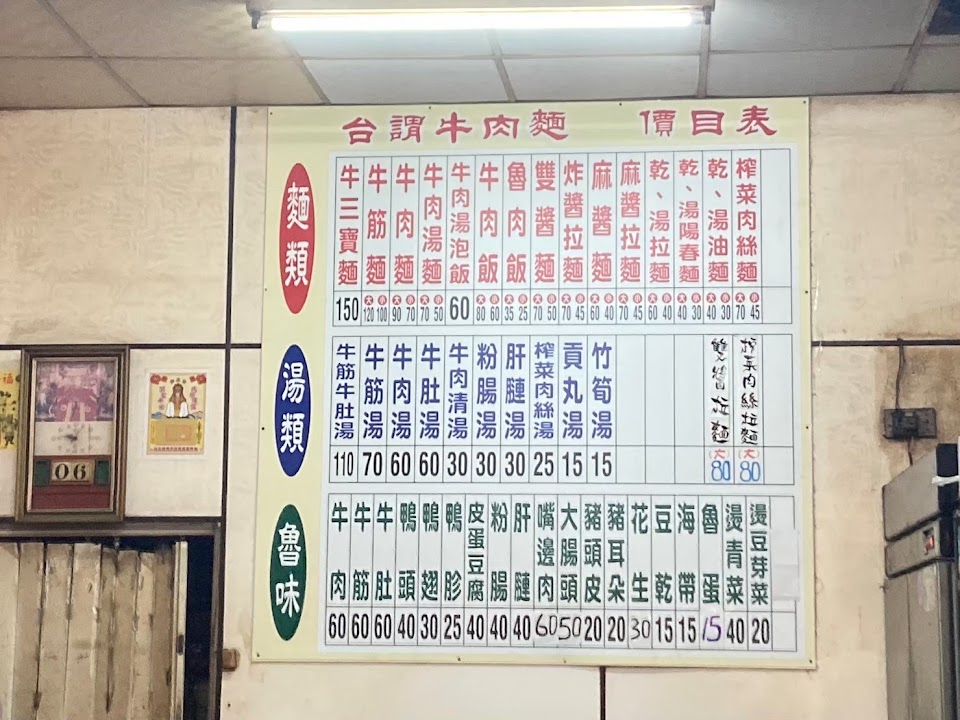 台謂牛肉麵 價目表
麵類
牛三寶麵 150
牛筋麵 大120 小100
牛肉麵 大90 小70
牛肉湯麵 大70 小50
牛肉湯泡飯 60
牛肉飯 大80 小60
魯肉飯 大35 小25
雙醬麵 大70 小50
炸醬拉麵 大70 小45
麻醬麵 大60 小40
麻醬拉麵 大70 小45
乾、湯拉麵 大60 小40
乾、湯陽春麵 大40 小30
乾、湯油麵 大40 小30
榨菜肉絲麵 大70 小45
湯類
牛筋牛肚湯 110
牛筋湯 70
牛肉湯 60
牛肚湯 60
牛肉清湯 30
粉腸湯 30
肝膁湯 30
榨菜肉絲湯 25
貢丸湯 15
竹筍湯 15
雙醬拉麵(大) 80
榨菜肉絲拉麵(大) 80
魯味
牛肉 60
牛筋 60
牛肚 60
鴨頭 40
鴨翅 30
鴨胗 25
皮蛋豆腐 40
粉腸 40
肝膁 40
嘴邊肉 60
大腸頭 50
豬頭皮 20
豬耳朵 20
花生 30
豆乾 15
海帶 15
魯蛋 15
燙青菜 40
燙豆芽菜 20
06
福